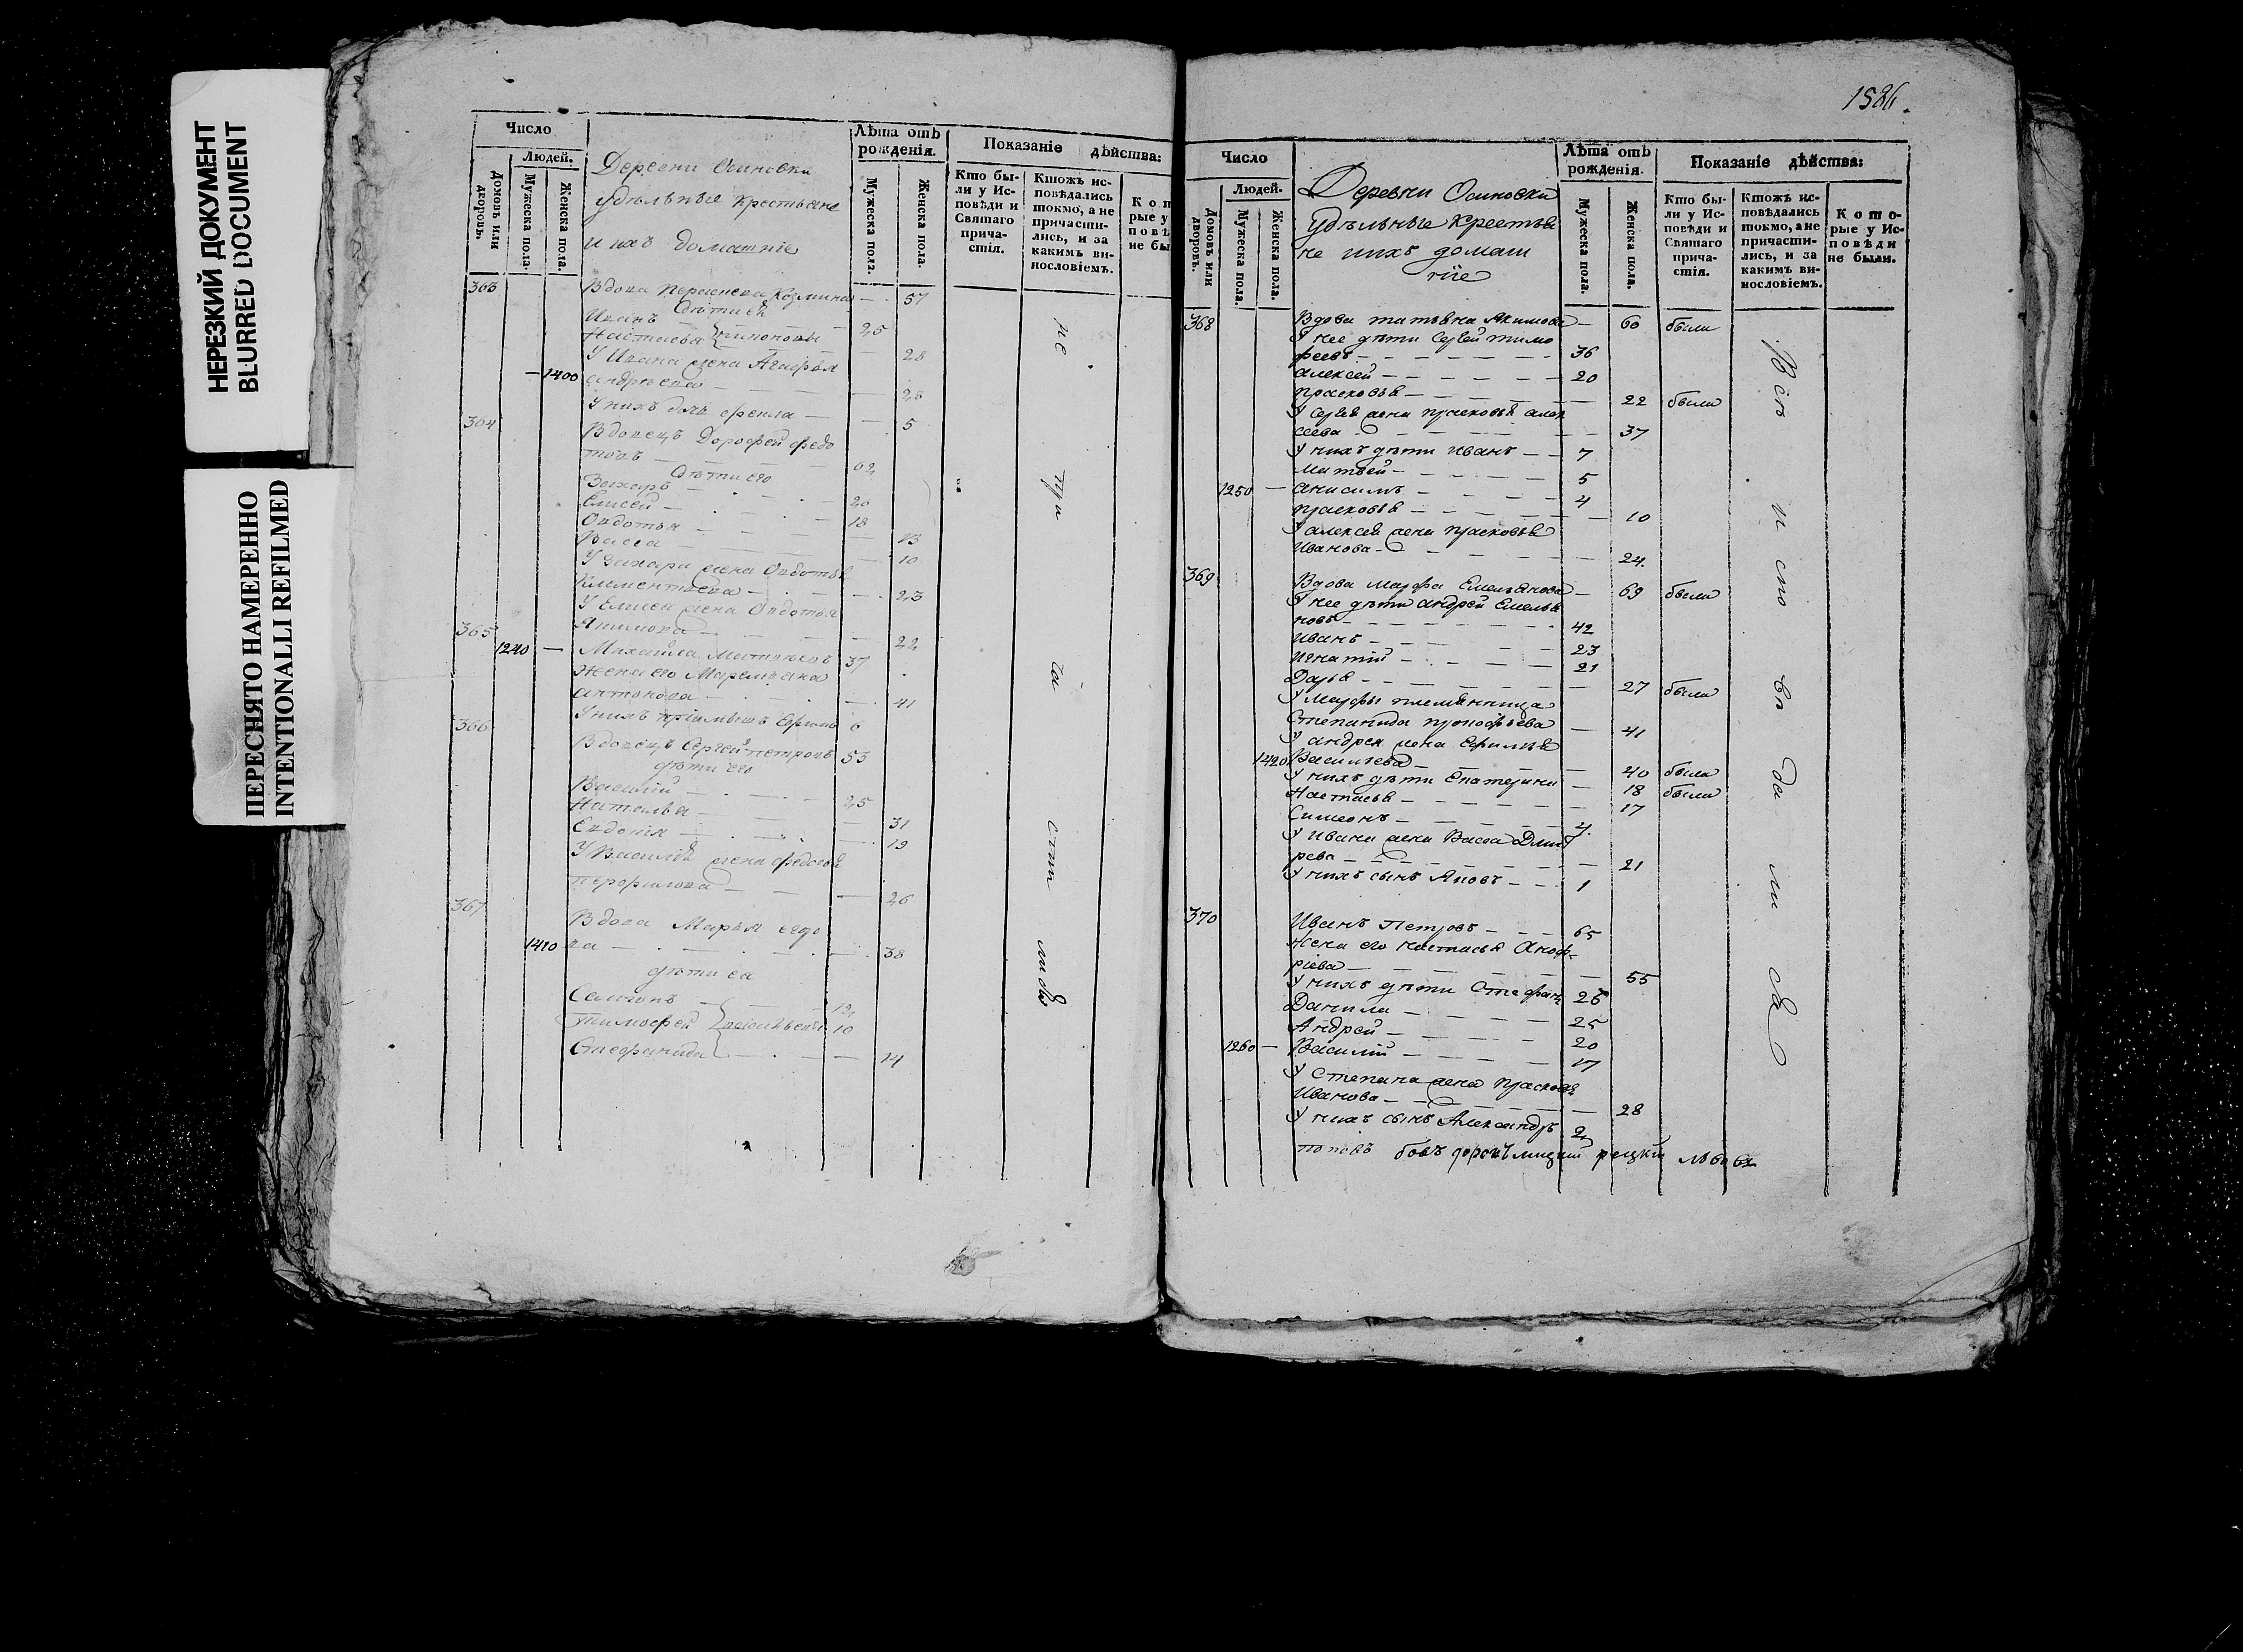 НЕРЕЗКИЙ ДОКУМЕНТ
BLURRED DOCUMENT
ПЕРЕСНЯТО НАМЕРЕННО
INTENTIONALLI REFILMED
Число
Людей.
Домовъ или дворовъ.
Мужеска пола.
Женска пола.
Деревни Осиновки
удѣльные крестьяне
и ихъ домашніе
Лѣта отъ рожденія.
Мужеска пола.
Женска пола.
Показаніе дѣйства:
Кто бы-
ли у Ис-
повѣди и
Святаго
прича-
стія.
Ктожъ ис-
повѣдались
токмо, а не
причасти-
лись, и за
какимъ ви-
нословіемъ.
Кот
рые у
повѣ
не бы
363 Вдова Козмина — 57
Дѣти ея
Иванъ 25
Настасья — 28
У Ивана жена Агафья
— 1400 Андреева — 28
У нихъ дочь Фекла — 5
364 Вдовецъ Дорофей Федо
товъ — 62
Дѣти его
Захаръ — 20
Елисей — 18
Овдотья — 13
Васса — 10
У Захара жена Овдотья
Климентьева — 23
У Елисея жена Овдотья
Якимова — 22
365 1240 — Михайла 37
Жена его Маремьяна
Антонова — 41
У нихъ пріимышъ Ефимъ 6
366 Вдовецъ Сергей Петровъ 53
дѣти его
Василій — 25
Наталья — 31
Евдотія — 19
У Василья жена Федосья
Перофилова — 26
367 Вдова Марья
1410 ва — 38
дѣти ея
Самсонъ — 12
Тимофей 10
Степанида — 14
не при ча сти лись
1586.
Число
Людей.
Домовъ или дворовъ.
Мужеска пола.
Женска пола.
Деревни Осиновки
Удѣльные Крестья
не и ихъ домаш
ніе
Лѣта отъ рожденія.
Мужеска пола.
Женска пола.
Показаніе дѣйства:
Кто бы-
ли у Ис-
повѣди и
Святаго
прича-
стія.
Ктожъ ис-
повѣдались
токмо, а не
причасти-
лись, и за
какимъ ви-
нословіемъ.
Кото-
рые у Ис-
повѣди
не были.
368 Вдова Татьяна Якимова — 60 были
У нее дѣти Сергей Тимо
феевъ — 36
Алексей — 20
Прасковья — 22 были
У Сергея жена Прасковья Алек
сеева — 37
У нихъ дѣти Иванъ — 7
Матвей — 5
1250 — Анисимъ — 4
Прасковья — 10
У Алексея жена Прасковья
Иванова — 24
369 Вдова Марфа Емельянова — 69 были
У нее дѣти Андрей Емелья
новъ — 42
Иванъ — 23
Игнатій — 21
Дарья — 27 были
У Марфы племянница
Степанида Прокофьева — 41
У Андрея жена Ефимья
1420 Васильева — 40 были
У нихъ дѣти Екатерина — 18 были
Настасья — 17
Симеонъ — 4
У Ивана жена Васса Дмит
рева — 21
У нихъ сынъ Яковъ — 1
370 Иванъ Петровъ — 65
Жена его Настасья Аноф-
ріева — 55
У нихъ дѣти Стефанъ 26
Данила — 25
Андрей — 20
1260 — Василій — 17
У Степана жена Прасковья
Иванова — 28
У нихъ сынъ Александръ 2